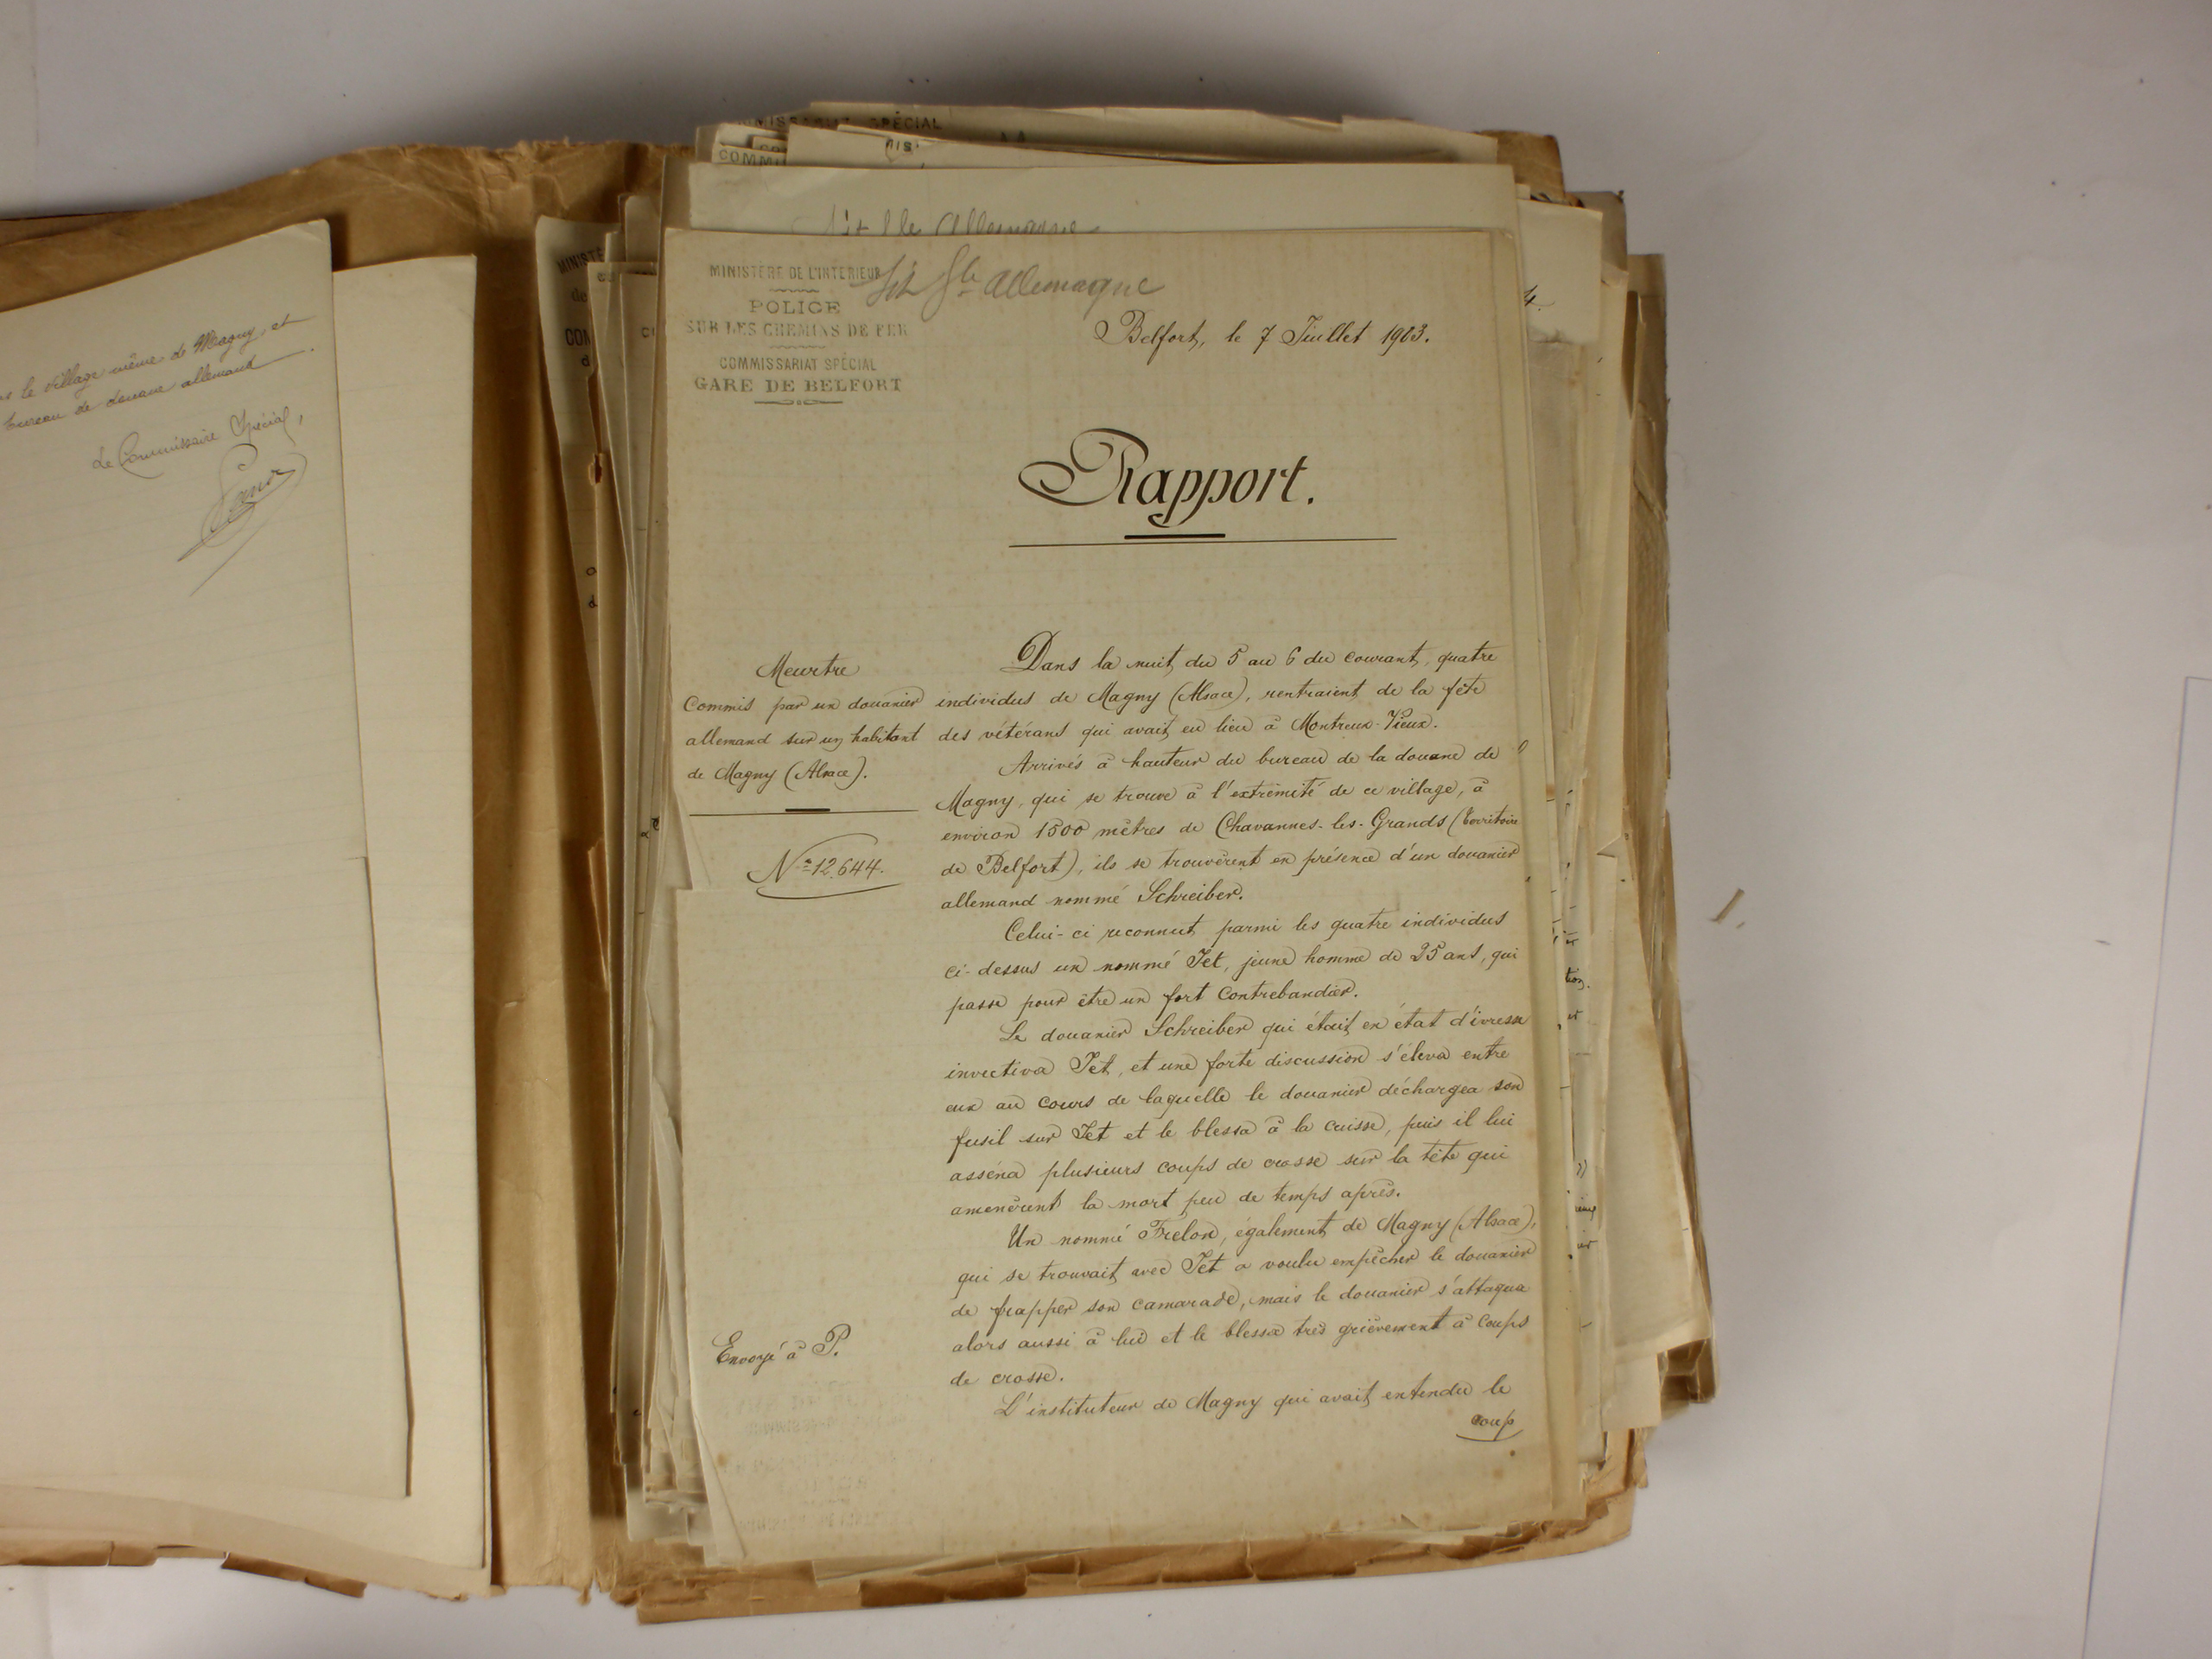 le village même de Magny, et
bureau de douane allemand
Le Commissaire Spécial,
MISSARIAT SPÉCIAL
COMMI
Allemagne
MINISTÈRE DE L'INTERIEUR
Allemagne
POLICE
SUR LES CHEMINS DE FER
COMMISSARIAT SPÉCIAL
GARE DE BELFORT
Belfort, le 7 Juillet 1903.
Rapport.
Meurtre
commis par un douanier
allemand sur un habitant
de Magny (Alsace).
N° 12.644.
Envoyé à P.
Dans la nuit du 5 au 6 du courant, quatre
individus de Magny (Alsace), rentraient de la fête
des vétérans qui avait eu lieu à Montreux-Vieux.
Arrivés à hauteur du bureau de la douane de
Magny, qui se trouve à l'extrémité de ce village, à
environ 1500 mètres de Chavannes-les-Grands (Territoire
de Belfort), ils se trouvèrent en présence d'un douanier
allemand nommé Schreiber.
Celui-ci reconnut parmi les quatre individus
ci-dessus un nommé Jet, jeune homme de 25 ans, qui
passe pour être un fort contrebandier.
Le douanier Schreiber qui était en état d'ivresse
invectiva Jet, et une forte discussion s'éleva entre
eux au cours de laquelle le douanier déchargea son
fusil sur Jet et le blessa à la cuisse, puis il lui
asséna plusieurs coups de crosse sur la tête qui
amenèrent la mort peu de temps après.
Un nommé Frélon, également de Magny (Alsace),
qui se trouvait avec Jet a voulu empêcher le douanier
de frapper son camarade, mais le douanier s'attaqua
alors aussi à lui et le blessa très grièvement à coups
de crosse.
L'instituteur de Magny qui avait entendu le
coup